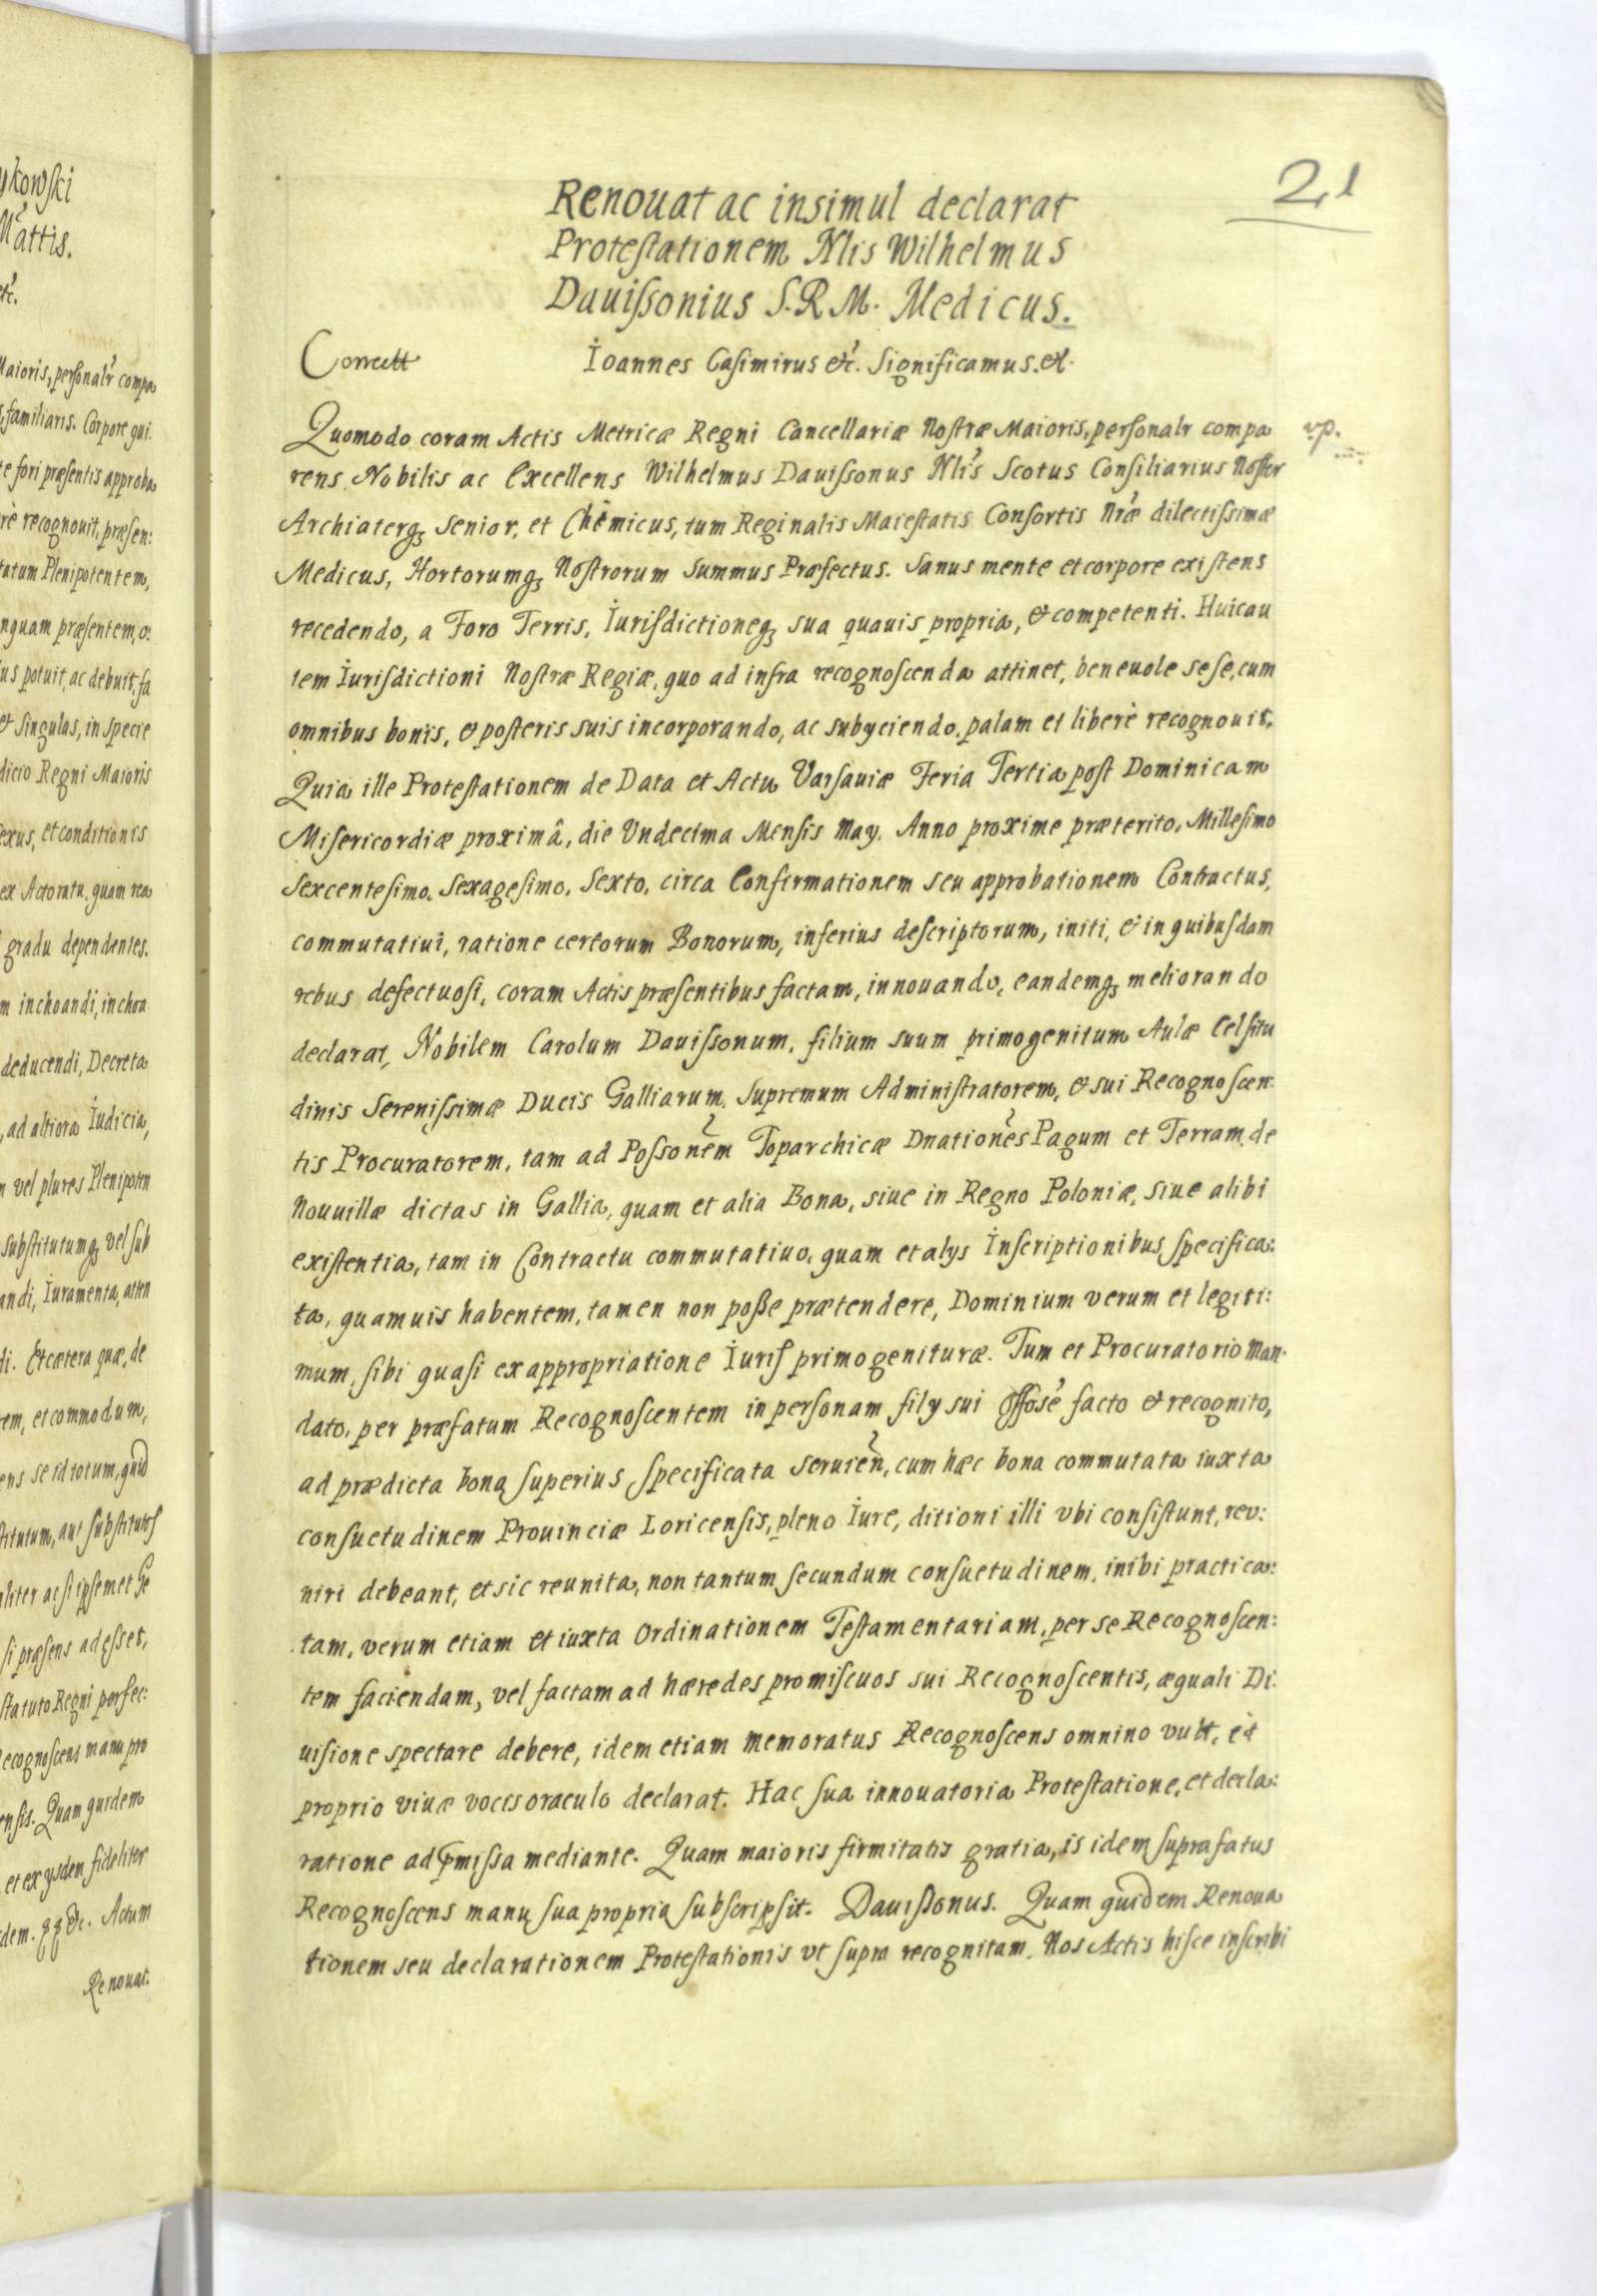 ykowski
Mattis.
etc.
Maioris, personalr compa
familiaris. Corpore qui.
te fori præsentis approba
rè recognouit, præsen:
tatum Plenipotentem,
nquam præsentem, o:
us potuit, ac debuit, fa
et singulas, in specie
dicio Regni Maioris
exus, et conditionis
ex Actoratu, quam rea
gradu dependentes.
m inchoandi, inchoa
deducendi, Decreta
, ad altiora Iudicia,
n vel plures Plenipoten
substitutumq3 vel sub
andi, Iuramenta, atten
di. Etcætera quæ, de
em, et commodum,
ens se id totum, quid
titutum, aut substitutos
aliter ac si ipsemet se
si præsens adesset,
statuto Regni perfec:
ecognoscens manu pro
ensis. Quam quidem
et ex ysdem fideliter
dem. qq etc. Actum
Renouat.
21
Renouat ac insimul declarat
Protestationem Nlis Wilhelmus
Dauissonius S.R.M. Medicus.
Correctt
Ioannes Casimirus etc. Significamus. et.
Quomodo coram Actis Metricæ Regni Cancellariæ Nostræ Maioris, personalr compa
vp.
rens Nobilis ac Excellens Wilhelmus Dauissonus Nlis Scotus Consiliarius Noster
Archiaterq3 Senior, et Chemicus, tum Reginalis Maiestatis Consortis Nræ dilectissimæ
Medicus, Hortorumq3 Nostrorum Summus Præfectus. Sanus mente et corpore existens
recedendo, a Foro Terris, Iurisdictioneq3 sua quauis propria, & competenti. Huic au
tem Iurisdictioni Nostræ Regiæ, quo ad infra recognoscenda attinet, beneuole sese, cum
omnibus bonis, & posteris suis incorporando, ac subyciendo, palam et liberè recognouit,
Quia ille Protestationem de Data et Actu Varsauiæ Feria Tertia post Dominicam
Misericordiæ proximâ, die Vndecima Mensis May. Anno proxime præterito, Millesimo
Sexcentesimo, Sexagesimo, Sexto, circa Confirmationem seu approbationem Contractus,
commutatiui, ratione certorum Bonorum, inferius descriptorum, initi, & in quibusdam
rebus defectuosi, coram Actis præsentibus factam, innouando, eandemq3 meliorando
declarat, Nobilem Carolum Dauissonum, filium suum primogenitum Aulæ Celsitu
dinis Serenissimæ Ducis Galliarum, Supremum Administratorem, & sui Recognoscen:
tis Procuratorem, tam ad Possonem Toparchicæ Dnationes Pagum et Terram de
Nouuillæ dictas in Gallia, quam et alia Bona, siue in Regno Poloniæ, siue alibi
existentia, tam in Contractu commutatiuo, quam et alys Inscriptionibus specifica:
ta, quamuis habentem, tamen non posse prætendere, Dominium verum et legiti:
mum, sibi quasi ex appropriatione Iuris primogenituræ. Tum et Procuratorio Man.
dato, per præfatum Recognoscentem in personam fily sui Offose facto & recognito,
ad prædicta bona superius specificata seruien, cum hæc bona commutata iuxta
consuetudinem Prouinciæ Loricensis, pleno Iure, ditioni illi vbi consistunt, rev:
niri debeant, et sic reunita, non tantum secundum consuetudinem, inibi practica:
tam, verum etiam et iuxta Ordinationem Testamentariam, per se Recognoscen:
tem faciendam, vel factam ad hæredes promiscuos sui Recognoscentis, æquali Di:
uisione spectare debere, idem etiam memoratus Recognoscens omnino vult, et
proprio viuæ vocis oraculo declarat. Hac sua innouatoria Protestatione, et decla:
ratione ad pmissa mediante. Quam maioris firmitatis gratia, is idem suprafatus
Recognoscens manu sua propria subscripsit. Dauissonus. Quam quidem Renoua
tionem seu declarationem Protestationis vt supra recognitam, Nos Actis hisce inscribi